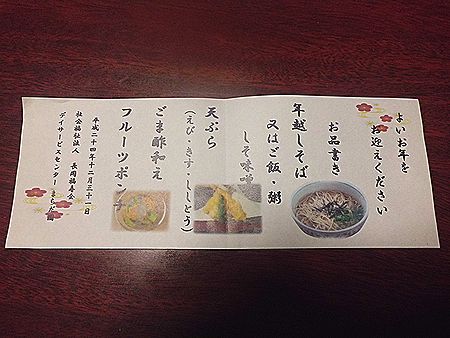 よいお年を
お迎えください
お品書き
年越しそば
又はご飯・粥
しそ味噌
天ぷら
(えび・きす・ししとう)
ごま酢和え
フルーツポンチ
平成二十四年十二月三十一日
社会福祉法人 長岡福寿会
デイサービスセンター